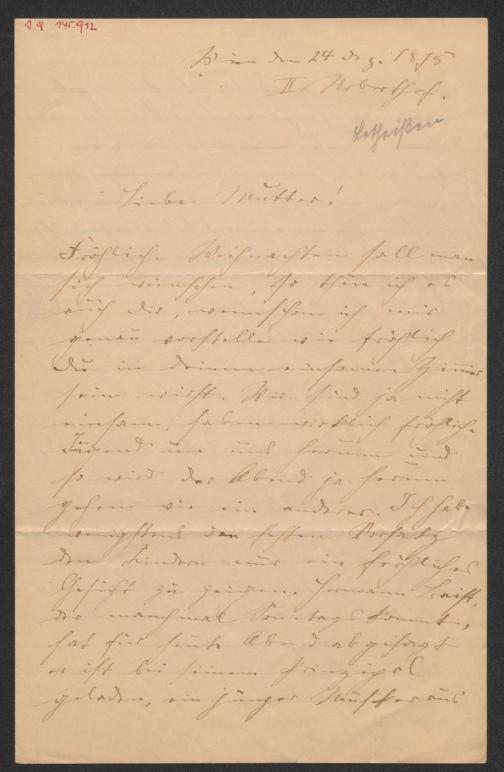 I.N 145.912
Wien den 24 Dez. 1875
II Roberthof.
Lotheißen
Liebe Mutter!
Fröhliche Weihnachten soll man
sich wünschen, so thue ich es
auch dir, wenn schon ich mir
genau vorstelle wie fröhlich
Du in deinem einsamen Zimmer
sein wirst. Wir sind ja nicht
einsam, haben wirklich fröhliche
Jugend um uns herum und
so wird der Abend ja herum
gehen wie ein anderer. Ich habe
wenigstens den festen Vorsatz
den Kindern nur ein fröhliches
Gesicht zu zeigen. Hermann
der manchmal Sonntags kommt,
hat für heute Abend abgesagt
er ist bei seinem Prinzipal
geladen, ein junger Musiker aus